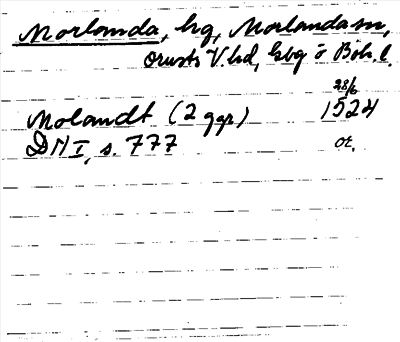 Morlanda, hg, Morlanda sn,
Orusts V. hd, Gbg o Boh. l.
28/6
Molandt (2 ggr) 1524
DN I, s. 777 or.